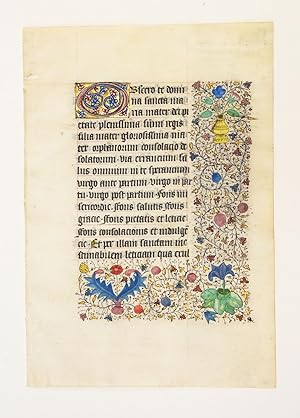 Obsecro te domi
na sancta ma
ria mater dei pi
etate plenissima sumi regis
filia mater gloriosissima ma
ter orphanorum consolacio de
solatorum via errancium sa
lus omnium in te sperancium
virgo ante partum virgo in par
tu virgo post partum fons mi
sericordie fons salutis fons
gracie fons pietatis et leticie
fons consolacionis et indulge
cie Et per illam sanctam ine
stimabilem leticiam qua exul